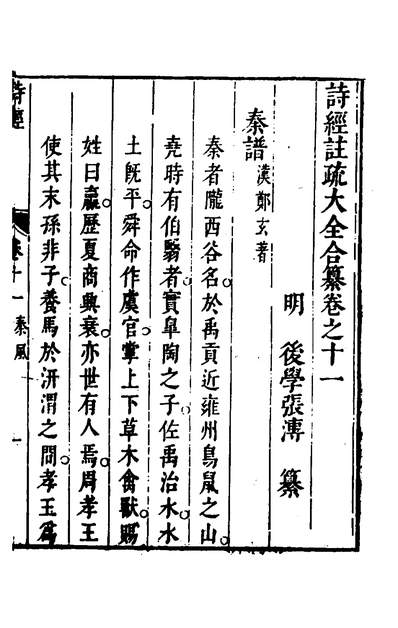 詩經註疏大全合纂卷之十一
明　後學張溥　纂
秦譜 漢鄭玄著
秦者隴西谷名於禹貢近雍州鳥鼠之山
堯時有伯翳者實臯陶之子佐禹治水水
土旣平舜命作虞官掌上下草木禽獸賜
姓曰嬴歷夏商興衰亦世有人焉周孝王
使其末孫非子養馬於汧渭之間孝王爲
詩經
卷十一 秦風
一